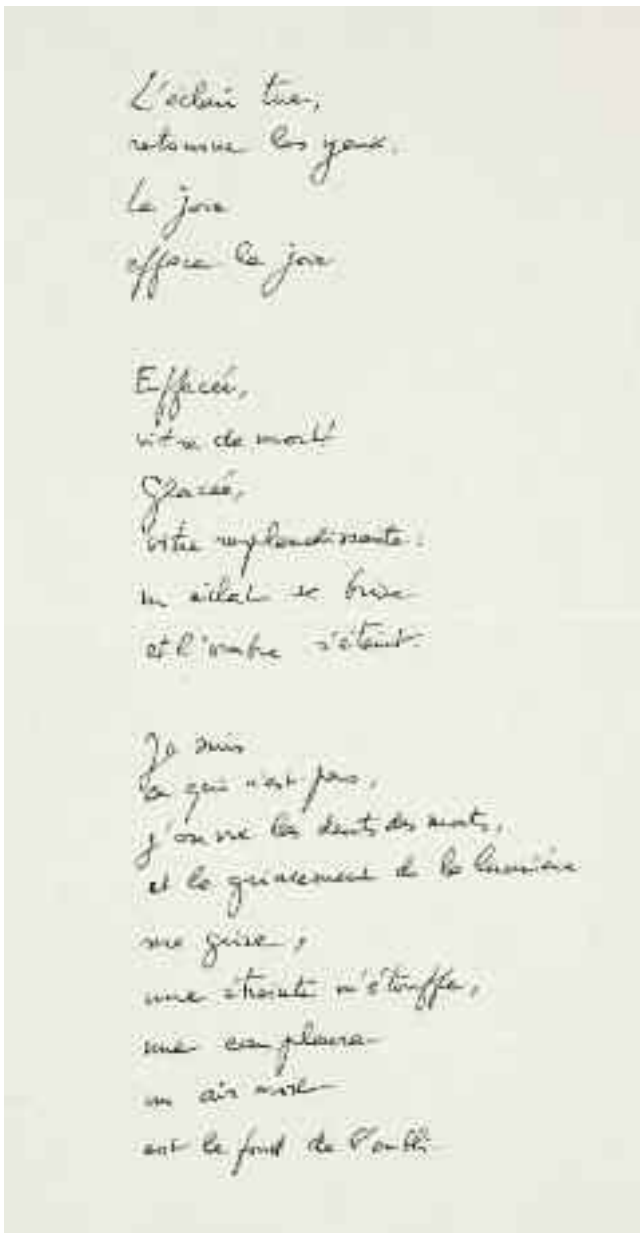 L'éclair tue,
retourne les yeux.
La joie
efface la joie
Effacée,
vitre de mort
Glacée,
vitre resplendissante :
un éclat se brise
et l'ombre s'éteint.
Je suis
ce qui n'est pas,
j'ouvre les dents des morts,
et le grincement de la lumière
me grise,
une étreinte m'étouffe,
une eau pleure
un air
est le fond de l'oubli